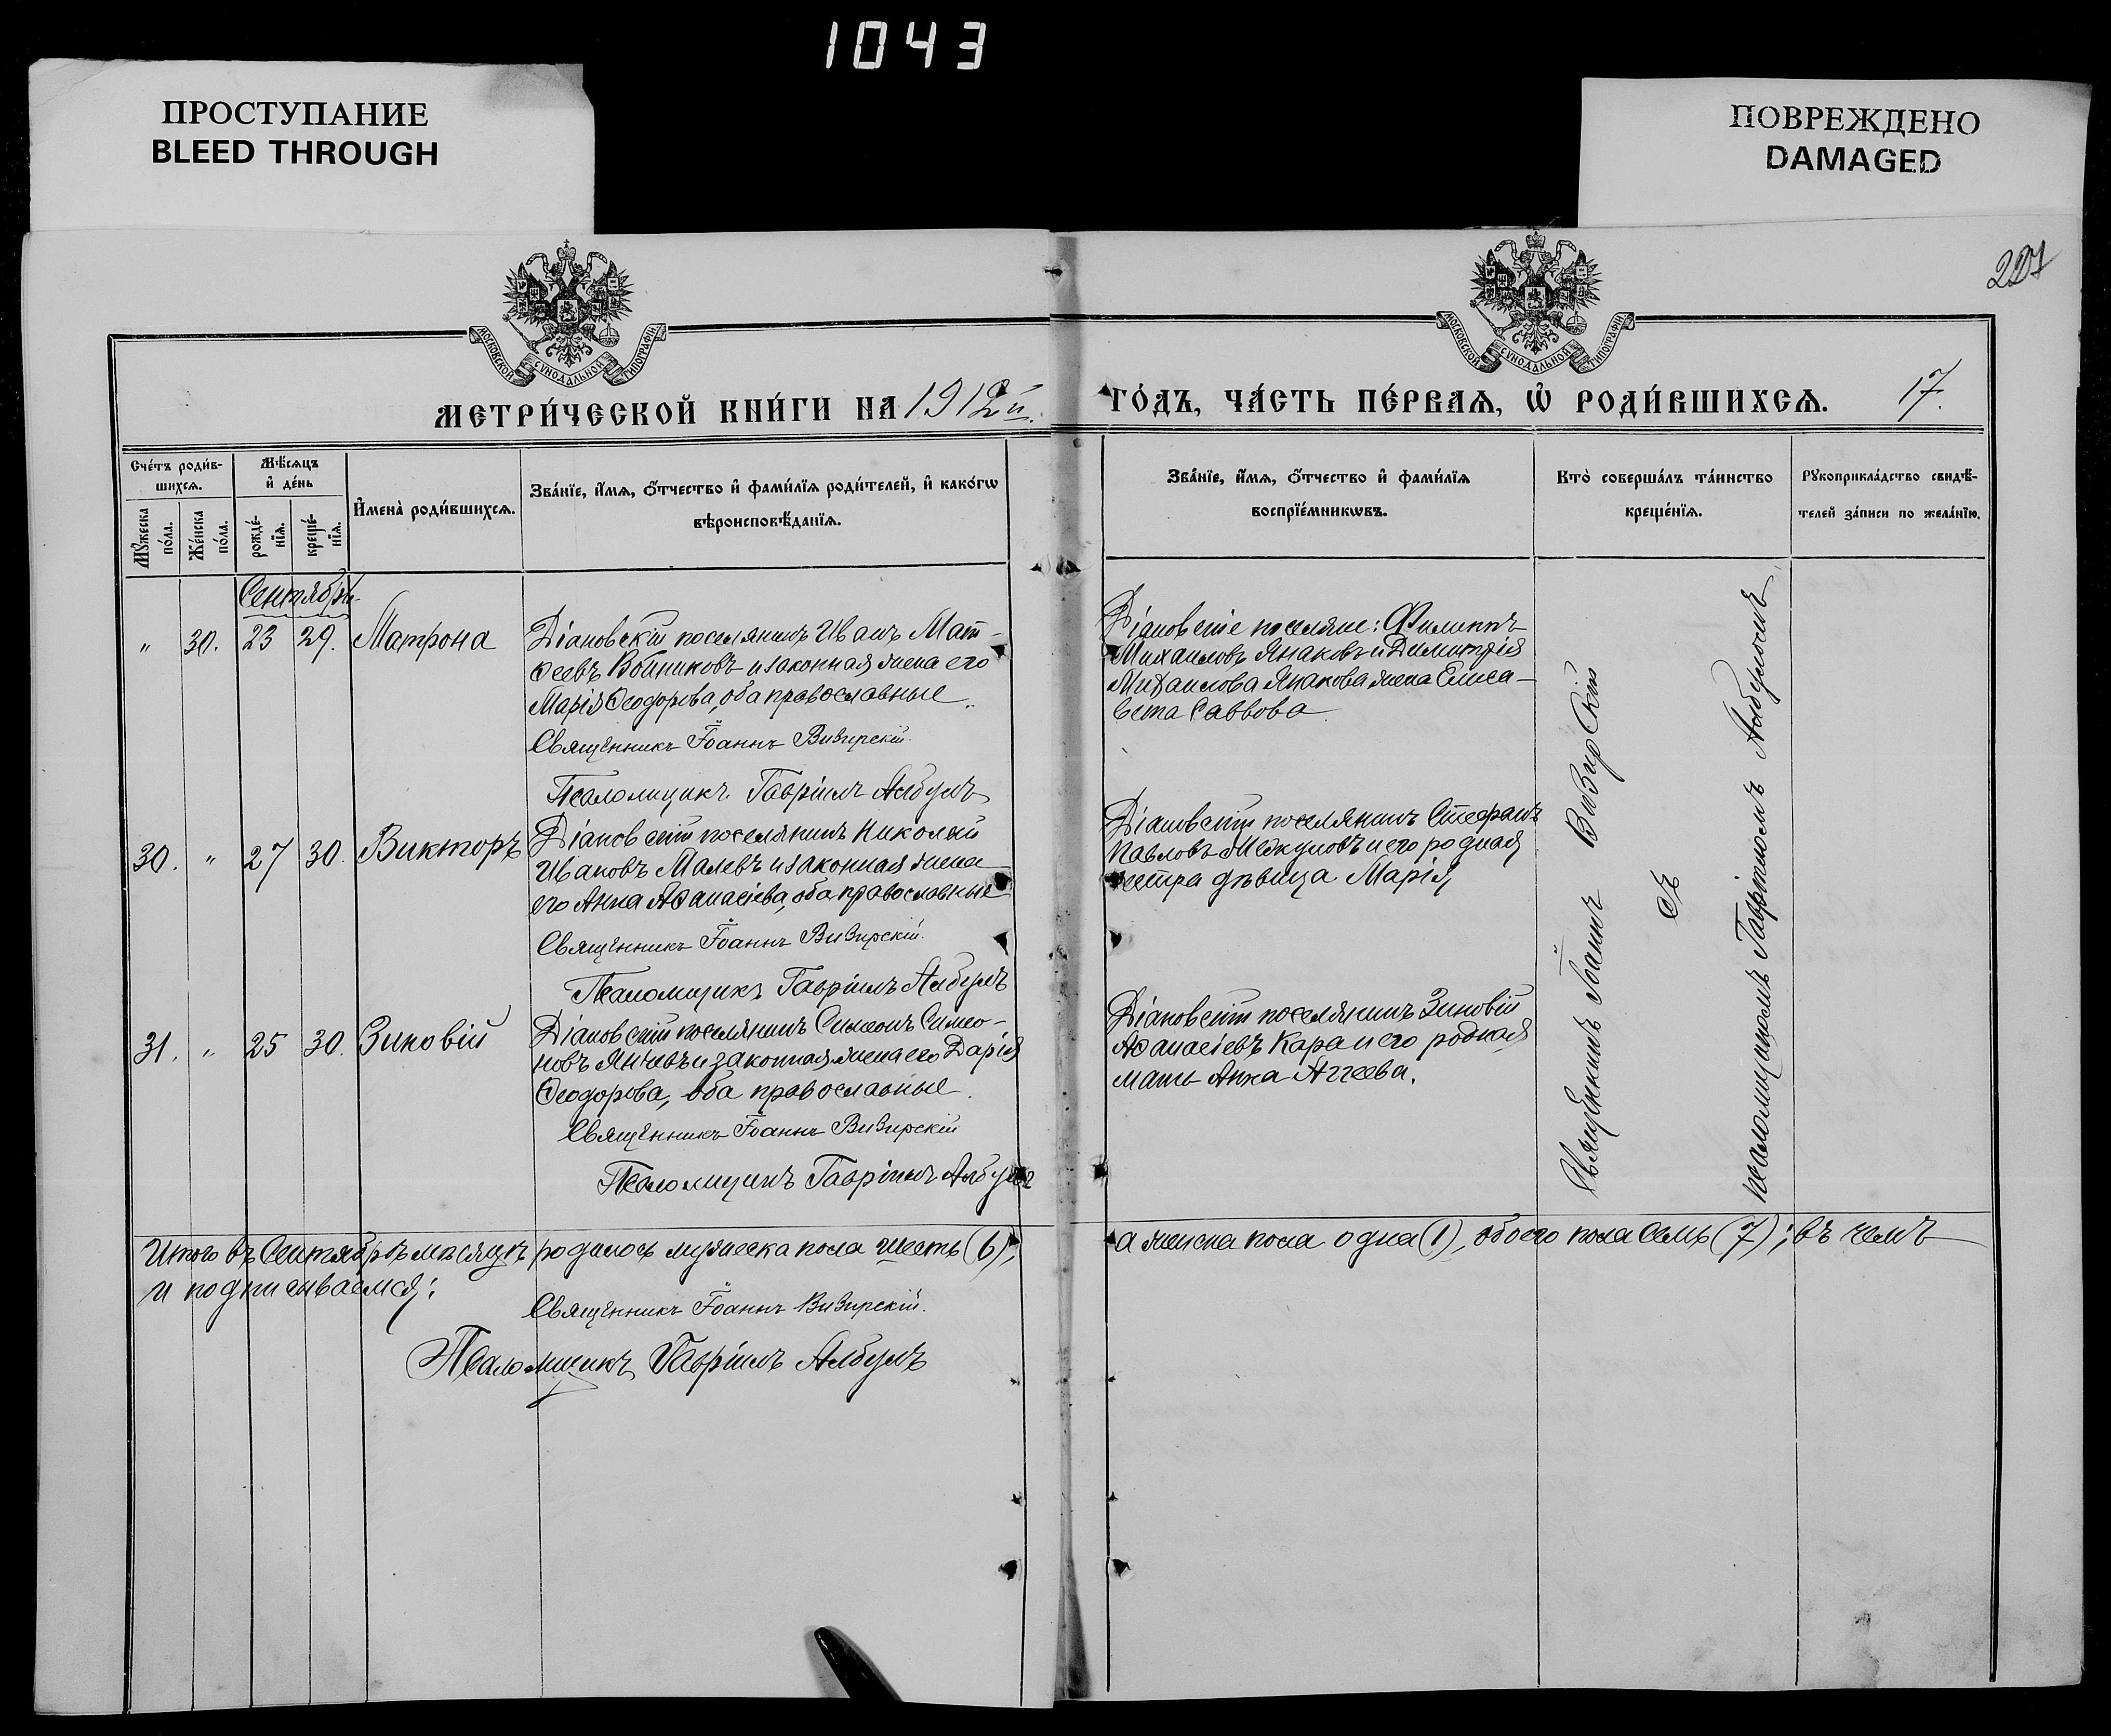 1043
ПРОСТУПАНИЕ
BLEED THROUGH
ПОВРЕЖДЕНО
DAMAGED
201
МОСКОВСКОЙ СѴНОДАЛЬНОЙ ТИПОГРАФІИ
МОСКОВСКОЙ СѴНОДАЛЬНОЙ ТИПОГРАФІИ
МЕТРИ́ЧЕСКОЙ КНИ́ГИ НА 1912й.
ГО́ДЪ, ЧА́СТЬ ПЕ́РВАЯ, Ѡ҆ РОДИ́ВШИХСЯ. 17.
Сче́тъ роди́в-
шихся.
Мѣ́сяцъ
и҆ де́нь
Му́жеска
по́ла.
Же́нска
по́ла.
рожде́-
нїя.
креще́-
нїя.
И҆мена̀ роди́вшихся.
Зва́нїе, и҆́мя, ѻ҆́тчество и҆ фами́лїя роди́телей, и҆ како́гѡ
вѣроисповѣ́данїя.
Зва́нїе, и҆́мя, ѻ҆́тчество и҆ фами́лїя
воспрїе́мникѡвъ.
Кто̀ соверша́лъ та́инство
креще́нїя.
Рукоприкла́дство свидѣ́-
телей за́писи по жела́нїю.
Сентябрь.
" 30. 23 29. Матрона
Діановскій поселянинъ Иванъ Мат-
ѳеевъ Войниковъ и законная жена его
Марія Ѳеодорова, оба православные.
Священникъ Іоаннъ Визирскій.
Псаломщикъ Гавріилъ Албулъ
Діановскіе поселяне: Филиппъ
Михаиловъ Янаковъ и Димитрія
Михаилова Янакова жена Елиса-
вета Саввова
30. " 27 30. Викторъ
Діановскій поселянинъ Николай
Ивановъ Малевъ и законная жена
его Анна Аѳанасіева, оба православные
Священникъ Іоаннъ Визирскій.
Псаломщикъ Гавріилъ Албулъ
Діановскій поселянинъ Стефанъ
Павловъ и его родная
сестра дѣвица Марія
31. " 25 30. Зиновій
Діановскій поселянинъ Симеонъ Симео-
новъ Янчевъ и законная жена его Дарія
Ѳеодорова, оба православные.
Священникъ Іоаннъ Визирскій
Псаломщикъ Гавріилъ Албулъ
Діановскій поселянинъ Зиновій
Аѳанасіевъ Кара и его родная
мать Анна Аггеева.
Священникъ Іоаннъ Визирскій
съ
псаломщикомъ Гавріиломъ Албуломъ
Итого въ Сентябрѣ мѣсяцѣ родилось мужеска пола шесть (6),
а женска пола одна (1), обоего пола семь (7); въ чемъ
и подписываемся:
Священникъ Іоаннъ Визирскій.
Псаломщикъ Гавріилъ Албулъ